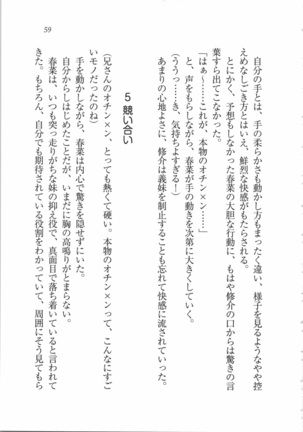 59
自分の手とは、手の柔らかさも動かし方もまったく違い、様子を見るようなやや控
えめなしごき方とはいえ、鮮烈な快感がもたらされる。
とにかく、予想もしなかった春菜の大胆な行動に、もはや修介の口からは驚きの言
葉すら出てこなかった。
「はぁ～……これが、本物のオチン×ン……」
と、声をもらしながら、春菜が手の動きを次第に大きくしていく。
(ううっ……き、気持ちよすぎる！)
あまりの心地よさに、修介は義妹を制止することも忘れて快感に流されていった。
5 競い合い
(兄さんのオチン×ン、とっても熱くて硬い。本物のオチン×ンって、こんなにすご
いモノだったのね)
手を動かしながら、春菜は内心で驚きを隠せずにいた。
自分からしはじめたことだが、いまだに胸の高鳴りがとまらない。
春菜は、いつも突っ走りがちな妹の抑え役で、真面目で落ち着いていると言われて
きた。もちろん、自分でも期待されている役割をわかっていて、周囲にそう見てもら